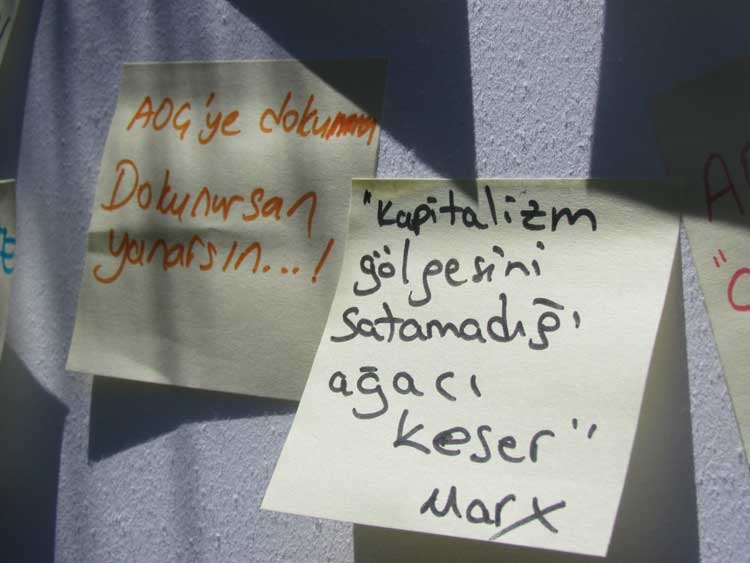 AOÇ'ye dokunma
Dokunursan
yanarsın...!
"Kapitalizm
gölgesini
satamadığı
ağacı
keser"
Marx